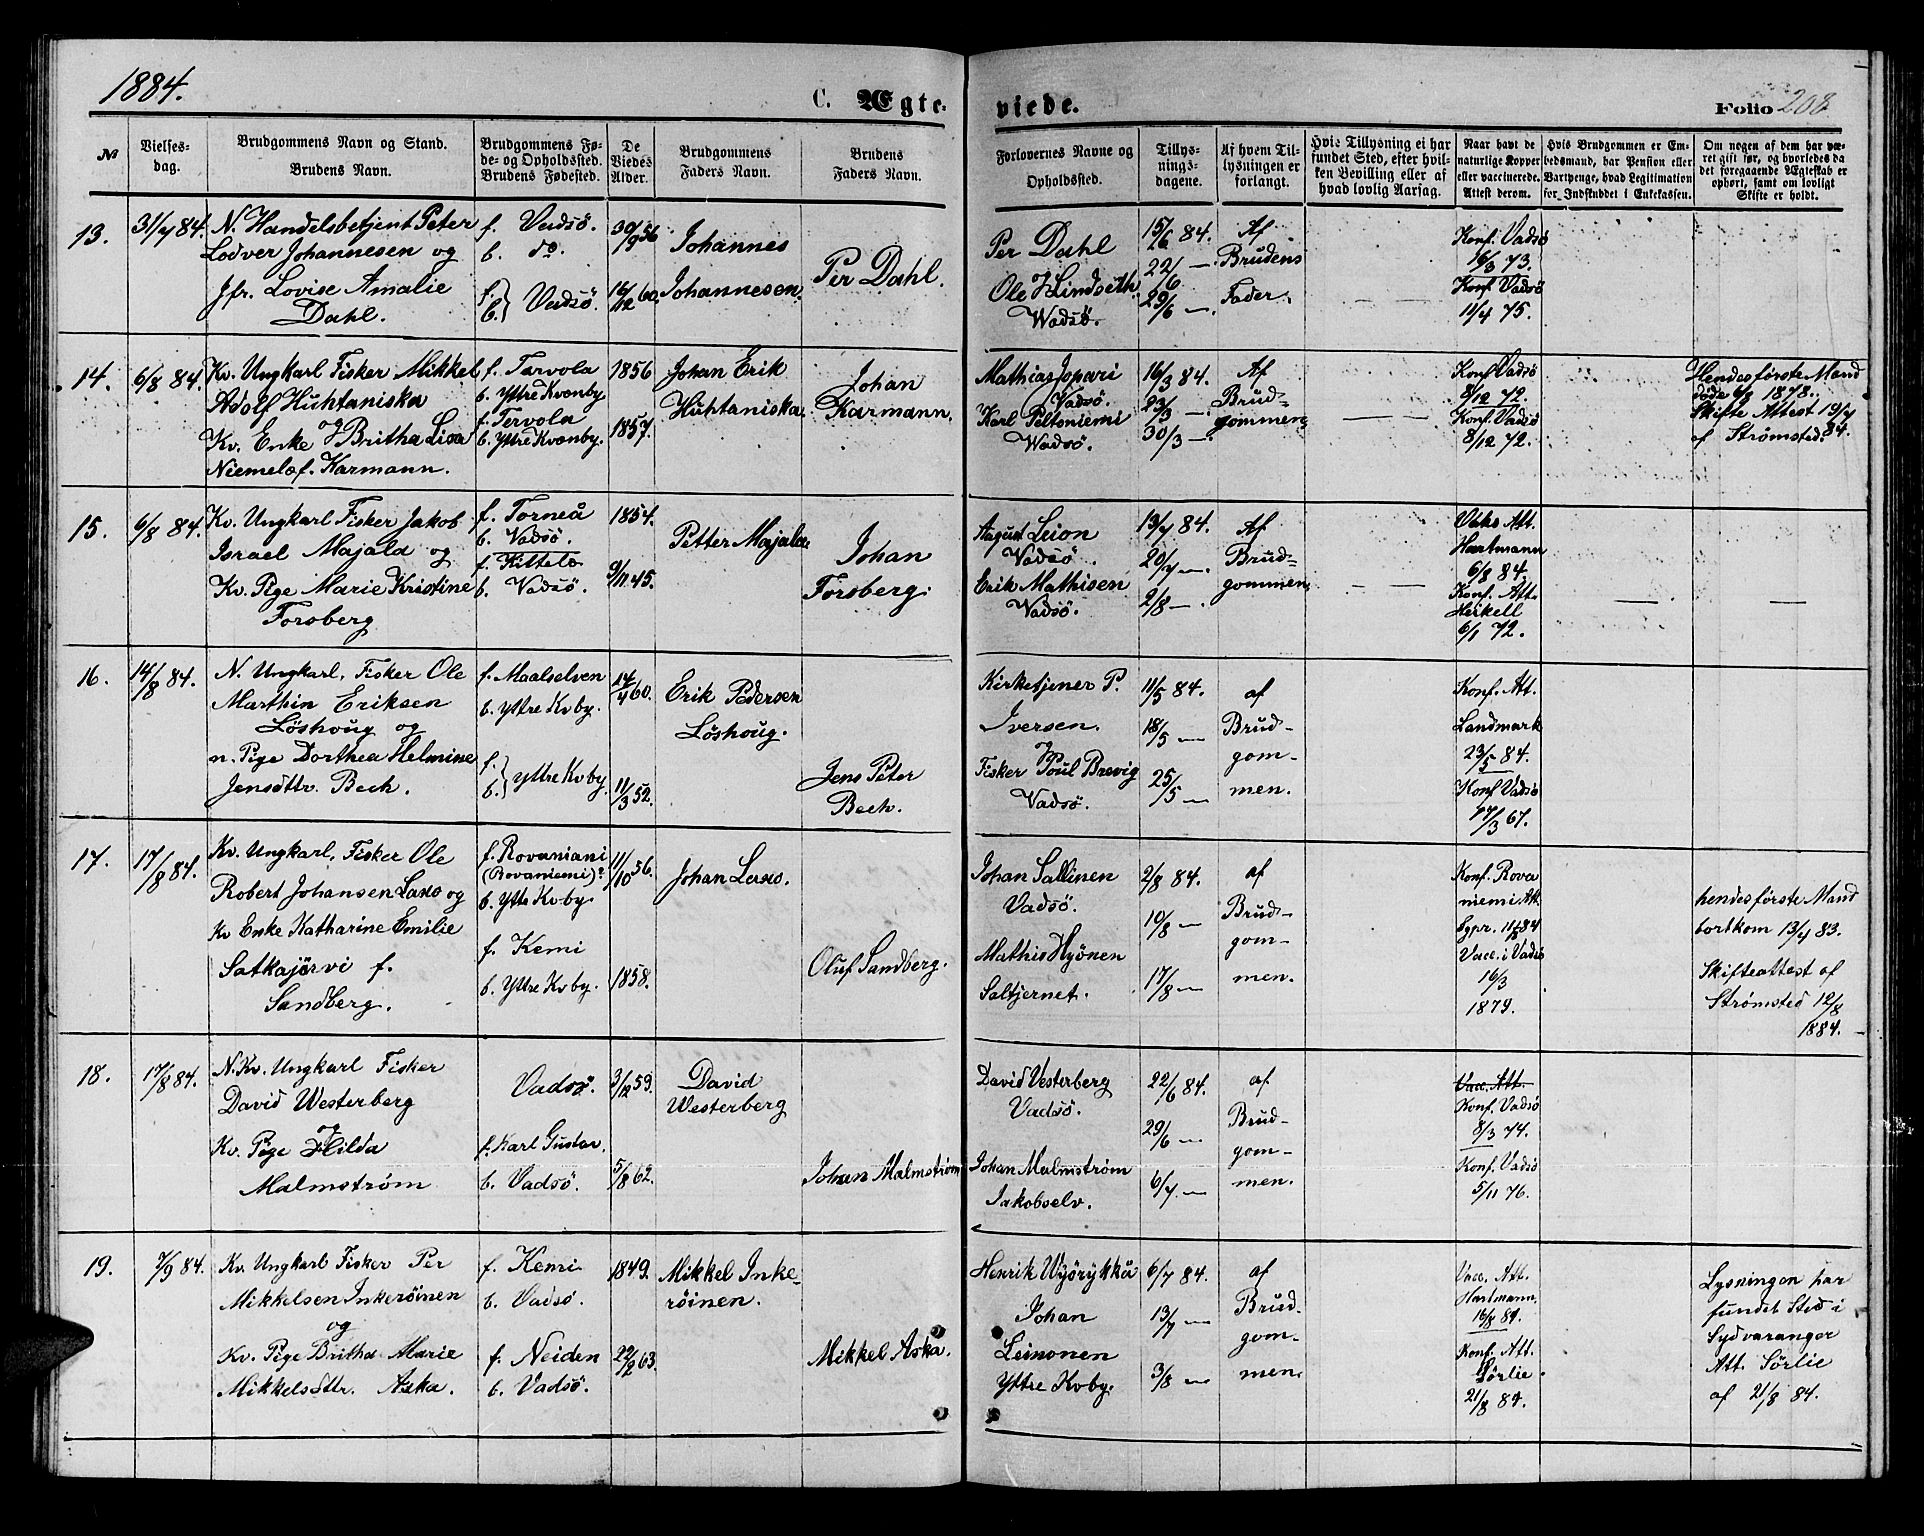 1884.
C. Ægte-
viede.
Folio 208
№
Vielses-
dag.
Brudgommens Navn og Stand.
Brudens Navn.
Brudgommens Fø-
de- og Opholdssted.
Brudens Fødested.
De
Viedes
Alder.
Brudgommens
Faders Navn.
Brudens
Faders Navn.
Forlovernes Navne og
Opholdssted.
Tillys-
nings-
dagene.
Af hvem Til-
lysningen er
forlangt.
Hvis Tillysning ei har
fundet Sted, efter hvil-
ken Bevilling eller af
hvad lovlig Aarsag.
Naar havt de
naturlige Kopper
eller vaccinerede.
Attest derom.
Hvis Brudgommen er Em-
bedsmand, har Pension eller
Vartpenge, hvad Legitimation
for Indskuddet i Enkekassen.
Om nogen af dem har væ-
ret gift før, og hvorledes da
det foregaaende Ægteskab er
ophørt, samt om lovligt
Skifte er holdt.
13.
31/7 84.
N. Handelsbetjent Peter
Lodver Johannesen og
Jfr. Lovise Amalie
Dahl.
f. Vadsö.
b. do.
f. b. } Vadsö.
30/9 56
16/12 60.
Johannes
Johannesen.
Per Dahl.
Per Dahl
og
Ole Lindseth
Wadsö.
15/6 84.
22/6 —
29/6 —
Af
Brudens
Fader.
Konf. Vadsö
16/3 73.
Konf. Vadsö
11/4 75.
14.
6/8 84.
Kv. Ungkarl Fisker Mikkel
Adolf Huhtaniska
og
Kv. Enke Britha Lisa
Niemela f. Karmann.
f. Tervola
b. Yttre Kvænby
f. Tervola
b. Yttre Kvænby.
1856
1857.
Johan Erik
Huhtaniska.
Johan
Karmann.
Mathias Jopari
Vadsö.
Karl Peltoniemi
Wadsö.
16/3 84.
23/3 —
30/3 —
Af
Brud-
gommen.
Konf Vadsö
8/12 72.
Konf. Vadsö
8/12 72.
Hendes første Mand
döde 1878.
Skifte Attest 19/7
af Strømsted. 84.
15.
6/8 84.
Kv. Ungkarl Fisker Jakob
Israel Majala og
Kv. Pige Marie Kristine
Forsberg
f. Torneå
b. Vadsö.
f. Kittela
b. Vadsö.
1854.
9/11 45.
Petter Majala
Johan
Forsberg.
August Leion
Vadsö
Erik Mathisen
Vadsö.
13/7 84.
20/7 —
2/8 —
Af
Brud-
gommen.
Att.
Hartmann
6/8 84.
Konf. Att.
Heikell
6/1 72.
16.
14/8 84.
N. Ungkarl, Fisker Ole
Marthin Eriksen
Löshoug og
n. Pige Dorthea Helmine
Jensdttr. Bech.
f. Maalselven
b. Yttre Kvby.
f. b. } Yttre Kvby.
14/4 60.
11/3 52.
Erik Pedersen
Löshoug.
Jens Peter
Bech.
Kirketjener P.
Iversen.
og
Fisker Poul Brevig
Vadsö.
11/5 84.
18/5 —
25/5 —
af
Brud-
gom-
men.
Konf. Att.
Landmark
23/5 84.
Konf Vadsö
17/3 67.
17.
17/8 84.
Kv. Ungkarl, Fisker Ole
Robert Johansen Laxo og
Kv Enke Katharine Emilie
Satkajärvi f.
Sandberg.
f. Rovaniani
(Rovaniemi)?
b. Yttre Kvby.
f. Kemi
b. Yttre Kvby.
11/10 56.
1858.
Johan Laxo.
Oluf Sandberg.
Johan Sallinen
Vadsö.
Mathis Hyönen
Saltjernet.
2/8 84.
10/8 —
17/8 —
af
Brud-
gom-
men.
Konf. Rova
niemi Att.
Vacc. i Vadsö
16/3
1879.
hendes første Mand
bortkom 13/4 83.
Skifteattest af
Strømsted 12/8
1884.
18.
17/8 84.
N. Kv. Ungkarl Fisker
David Westerberg
og
Kv. Pige Hilda
Malmström
Vadsö.
f. Karl Gustav.
b. Vadsö.
3/12 59.
5/8 62.
David
Westerberg
Johan Malmström
David Vesterberg
Vadsö.
Johan Malmström
Jakobselv.
22/6 84.
29/6 —
6/7 —
af
Brud-
gom-
men.
Vacc. Att.
Konf. Vadsö
8/3 74.
Konf. Vadsö
5/11 76.
19.
7/9 84.
Kv. Ungkarl Fisker Per
Mikkelsen Inkeröinen
og
Kv. Pige Britha Marie
Mikkelsdttr. Aska.
f. Kemi
b. Vadsö.
f. Neiden
b. Vadsö.
1849.
22/2 63.
Mikkel Inke-
röinen.
Mikkel Aska.
Henrik Wyörykkä
Johan
Leinonen
Yttre Kvby.
6/7 84.
13/7 —
3/8 —
af
Brud-
gom-
men.
Vacc. Att.
Hartmann.
16/8 84.
Konf. Att.
Sörlie.
21/8 84.
Lysningen har
fundet Sted i
Sydvaranger
Att. Sörlie
af 21/8 84.